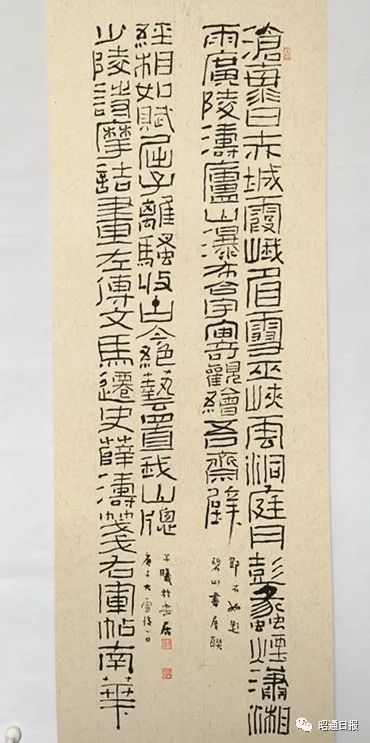 滄海日赤城霞峨眉雪巫峽雲洞庭月彭蠡煙瀟湘
雨廣陵濤廬山瀑布合宇宙奇觀繪吾齋壁
鄧石如題
碧山書屋聯
少陵詩摩詰畫左傳文馬遷史薛濤箋右軍帖南華
經相如賦屈子離騷收古今絕藝置我山窗
庚子大雪後一日
昭通日报